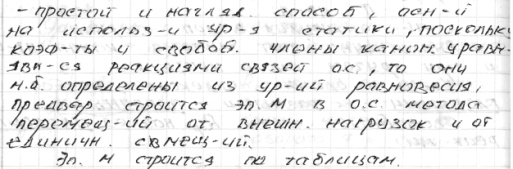 - простой и нагляд. способ, осн-й
на использ-и ур-я статики, поскольк
коэф-ты и свобод. члены канон. уравн.
явл-ся реакциями связей о.с., то они
м.б. определены из ур-ий равновесия,
предвар. строится эп. М в о.с. метода
перемещ-ий от внешн. нагрузок и от
единичн. смещ-ий.
Эп. М строится по таблицам.